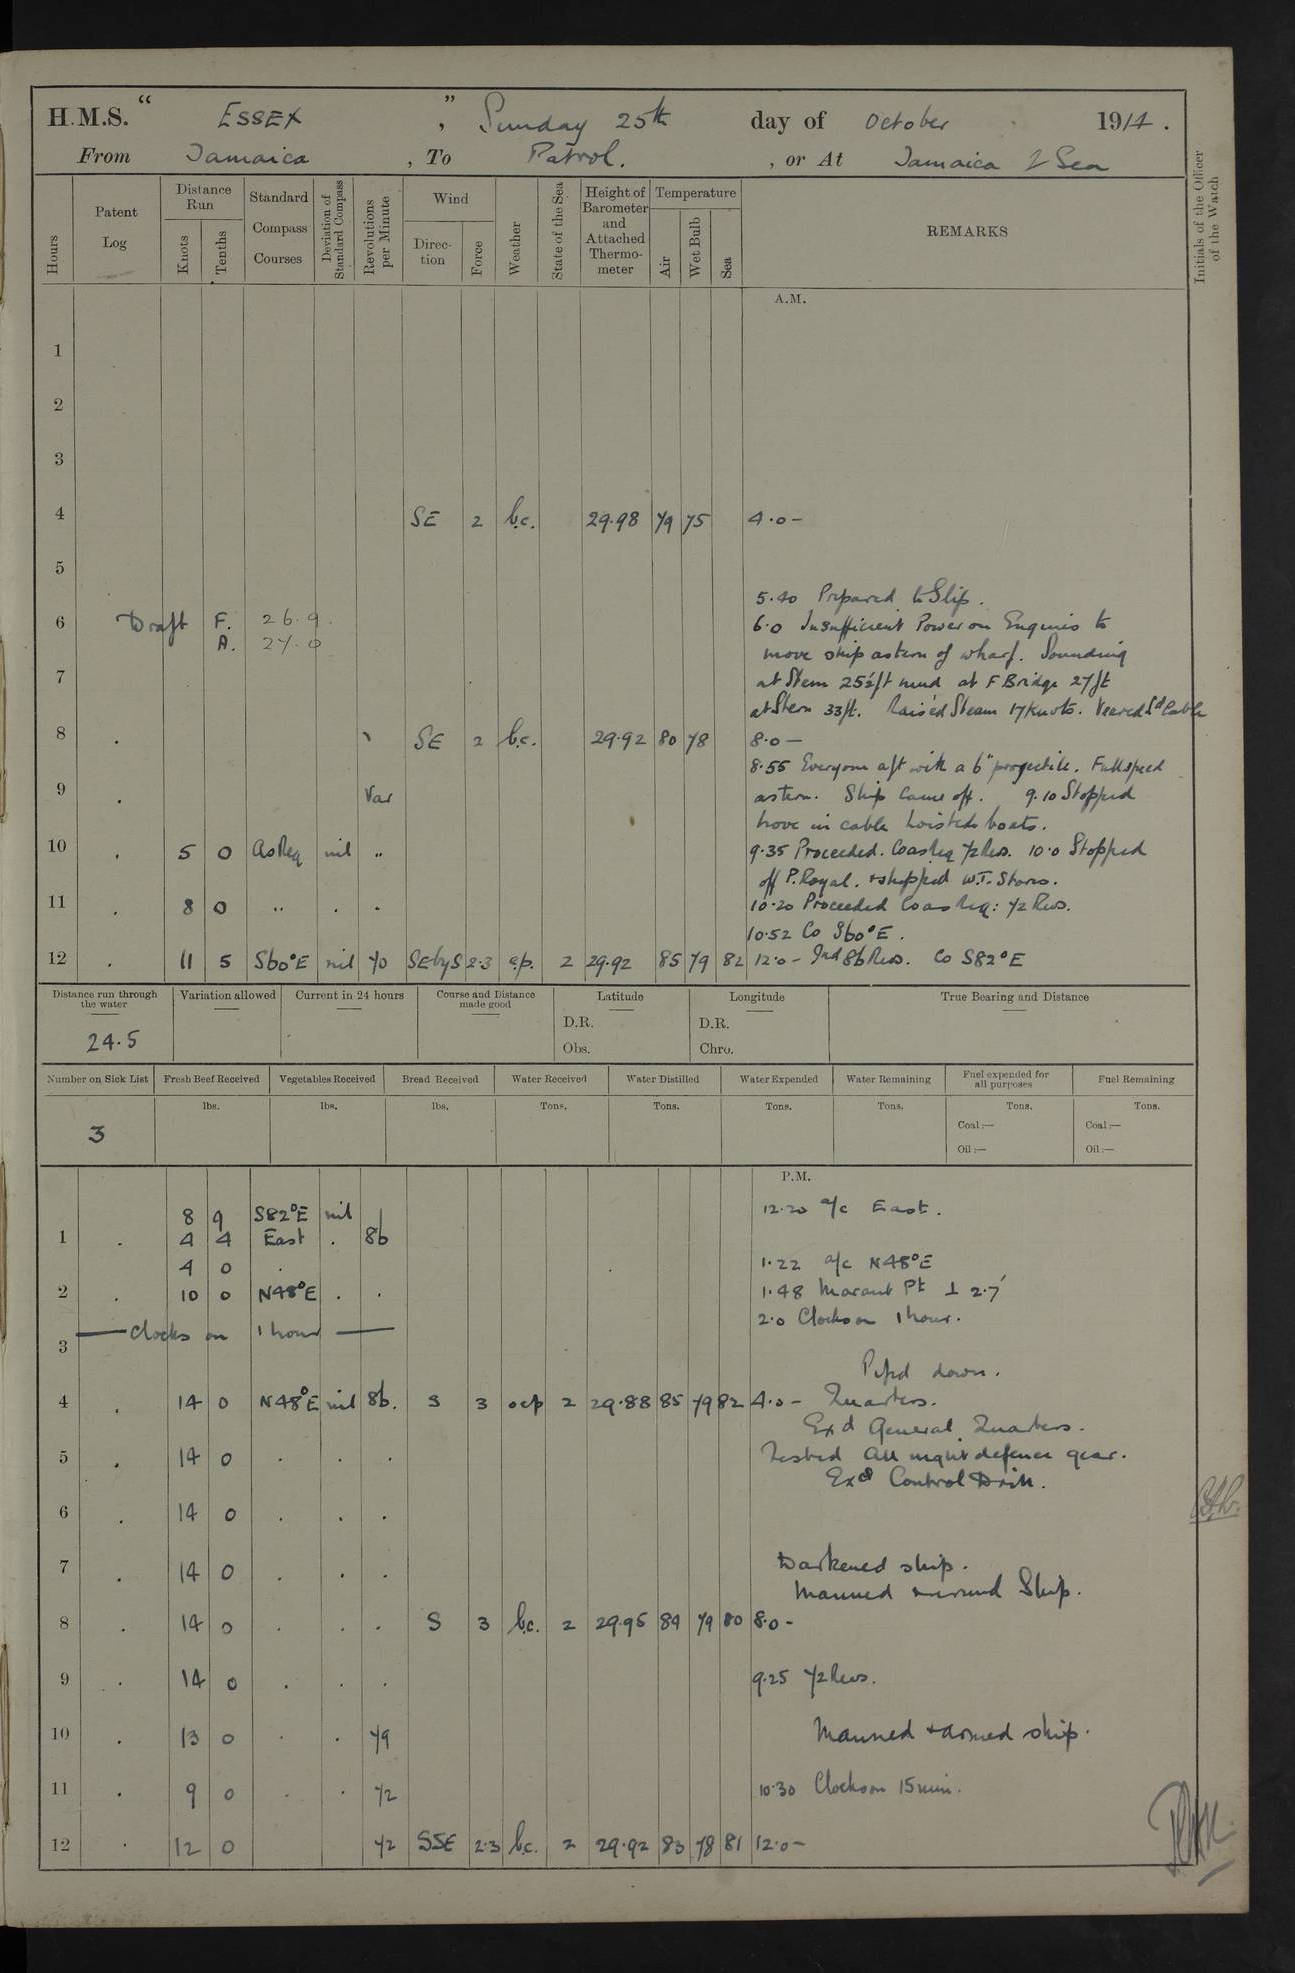 H.M.S. “ Essex ” , Sunday 25th day of October 1914.
From Jamaica , To Patrol. , or At Jamaica & Sea
Hours
Patent Log
Distance Run
Knots
Tenths
Standard Compass Courses
Deviation of Standard Compass
Revolutions per Minute
Wind
Direction
Force
Weather
State of the Sea
Height of Barometer and Attached Thermometer
Temperature
Air
Wet Bulb
Sea
REMARKS
Initials of the Officer of the Watch
A.M.
1
2
3
4 SE 2 b.c. 29.98 79 75 4.0 –
5
5.40 Prepared to Slip.
6 Draft F. 26.9 6.0 Insufficient Power on Engines to
A. 27.0 move ship astern of wharf. Sounding
7 at Stem 25½ft mud at F Bridge 27ft
at Stern 33ft. Raised Steam 17 Knots. Veered Sd Cable
8 . SE 2 b.c. 29.92 80 78 8.0 –
8.55 Everyone aft with a 6" projectile. Full speed
9 . Var astern. Ship came off. 9.10 Stopped
hove in cable hoisted boats.
10 . 5 0 As Req nil " 9.35 Proceeded. Co as Req 72 Revs. 10.0 Stopped
off P. Royal. & shipped W.T. Stores.
11 . 8 0 " . . 10.20 Proceeded Co as Req: 72 Revs.
10.52 Co S60°E.
12 . 11 5 S60°E nil 70 SEbyS 2.3 c.p. 2 29.92 85 79 82 12.0 – Ind 86 Revs. Co S82°E
Distance run through the water
24.5
Variation allowed
Current in 24 hours
Course and Distance made good
Latitude
D.R.
Obs.
Longitude
D.R.
Chro.
True Bearing and Distance
Number on Sick List
3
Fresh Beef Received
lbs.
Vegetables Received
lbs.
Bread Received
lbs.
Water Received
Tons.
Water Distilled
Tons.
Water Expended
Tons.
Water Remaining
Tons.
Fuel expended for all purposes
Tons.
Coal :—
Oil :—
Fuel Remaining
Tons.
Coal :—
Oil :—
P.M.
8 9 S82°E nil 12.20 a/c East.
1 . 4 4 East . 86
4 0 . 1.22 a/c N48°E
2 . 10 0 N48°E . . 1.48 Morant Pt ⊥ 2.7'
— Clocks on 1 hour — 2.0 Clocks on 1 hour.
3
Pip'd down.
4 . 14 0 N48°E nil 86. S 3 ocp 2 29.88 85 79 82 4.0 – Quarters.
Exd General Quarters.
5 . 14 0 . . . Tested all night defence gear.
Exd Control Drill.
6 . 14 0 . . .
7 . 14 0 . . . Darkened ship.
Manned Ship.
8 . 14 0 . . . S 3 b.c. 2 29.95 84 79 80 8.0 –
9 . 14 0 . . . 9.25 72 Revs.
10 . 13 0 . . 79 Manned & armed ship.
11 . 9 0 . . 72 10.30 Clocks on 15 min.
12 . 12 0 72 SSE 2.3 b.c. 2 29.92 83 78 81 12.0 –